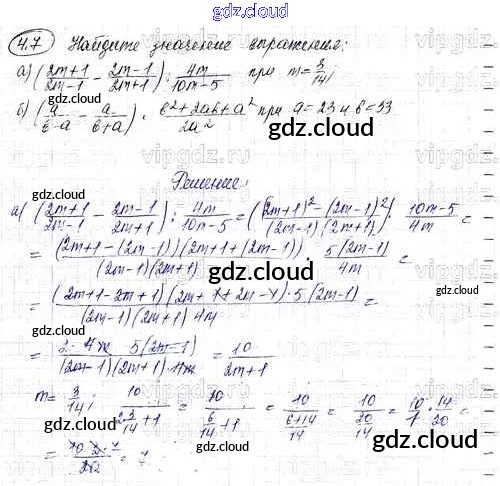 gdz.cloud
4.7 Найдите значение выражения:
а) (2m+1/2m-1 - 2m-1/2m+1) : 4m/10m-5 при m = 3/14;
б) (a/b-a - a/b+a) · b²+2ab+a²/2a² при a = 23 и b = 33
gdz.cloud
gdz.cloud
Решение
а) (2m+1/2m-1 - 2m-1/2m+1) : 4m/10m-5 = ((2m+1)² - (2m-1)²/(2m-1)(2m+1)) · 10m-5/4m =
gdz.cloud
= (2m+1-(2m-1))(2m+1+(2m-1))/(2m-1)(2m+1) · 5(2m-1)/4m =
gdz.cloud
= (2m+1-2m+1)(2m+1+2m-1)·5(2m-1)/(2m-1)(2m+1)4m =
gdz.cloud
= 2·4m·5(2m-1)/(2m-1)(2m+1)·4m = 10/2m+1
gdz.cloud
m = 3/14; 10/2·3/14+1 = 10/6/14+1 = 10/6+14/14 = 10/20/14 = 10/1 · 14/20 =
= 10·2·7/20 = 7
gdz.cloud